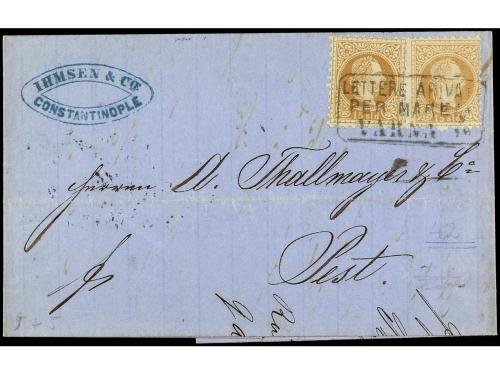 IHMSEN & Co.
CONSTANTINOPLE
LETTERE ARIVA
PER MARE
Herren A. Thallmayer & Co.
Pest.
42